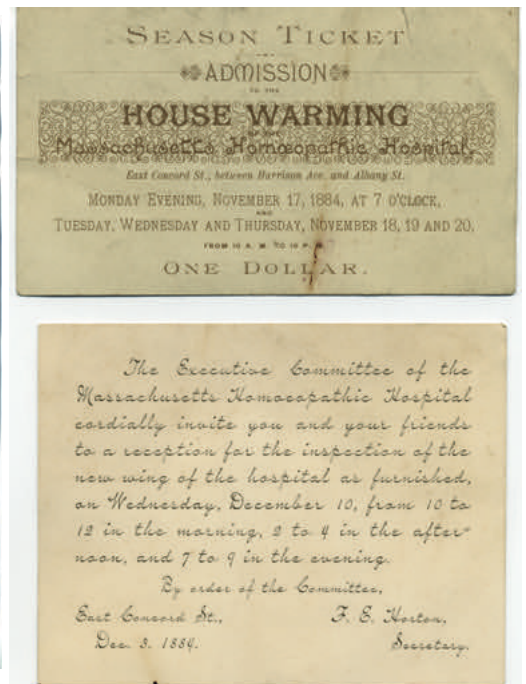 SEASON TICKET
ADMISSION
TO THE
HOUSE WARMING
OF THE
Massachusetts Homœopathic Hospital,
East Concord St., between Harrison Ave. and Albany St.
MONDAY EVENING, NOVEMBER 17, 1884, AT 7 O'CLOCK,
AND
TUESDAY, WEDNESDAY AND THURSDAY, NOVEMBER 18, 19 AND 20,
FROM 10 A. M. TO 10 P. M.
ONE DOLLAR.
The Executive Committee of the
Massachusetts Homoeopathic Hospital
cordially invite you and your friends
to a reception for the inspection of the
new wing of the hospital as furnished,
on Wednesday, December 10, from 10 to
12 in the morning, 2 to 4 in the after-
noon, and 7 to 9 in the evening.
By order of the Committee,
East Concord St., F. E. Horton,
Dec. 3. 1884. Secretary.